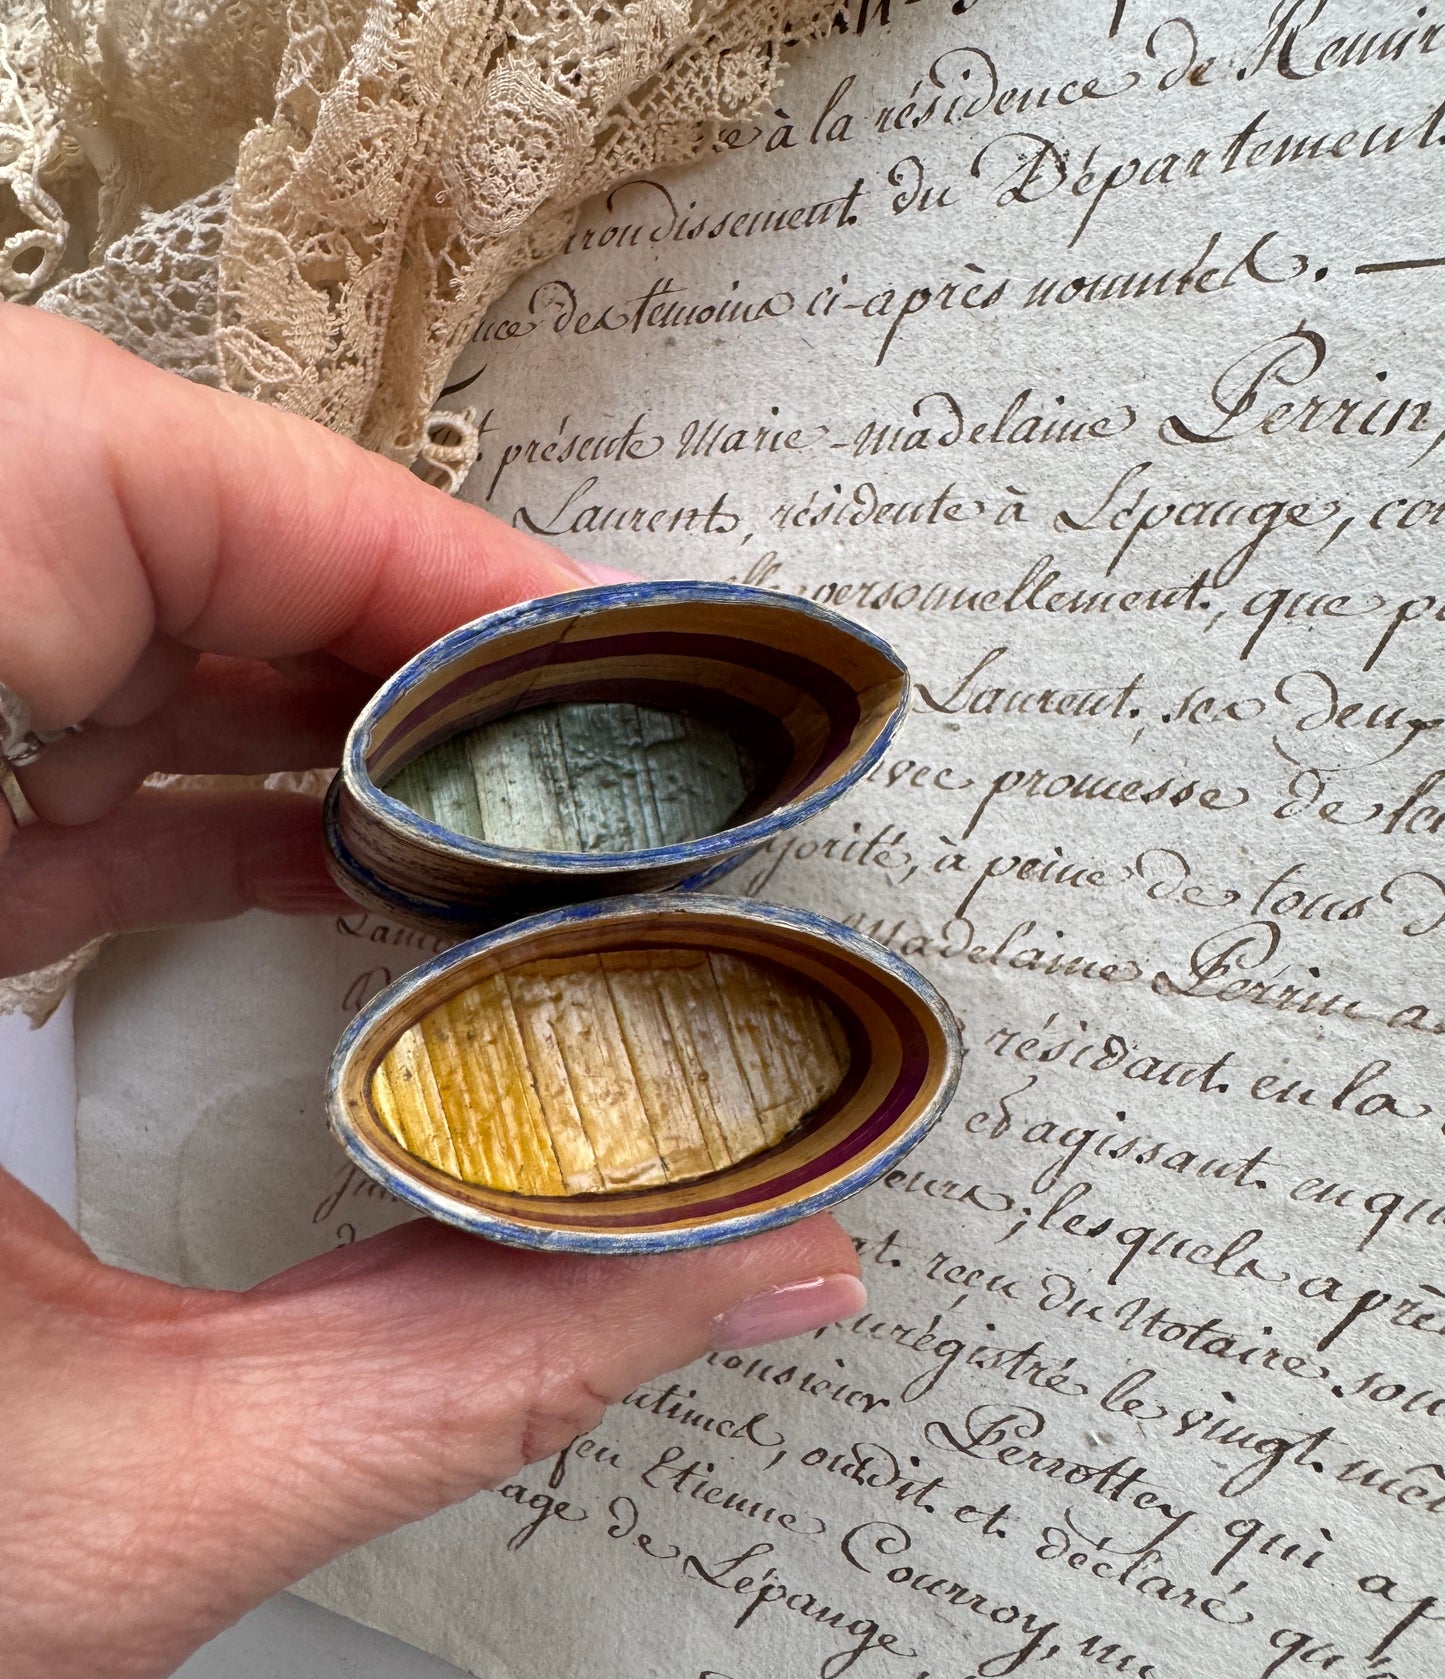 à la résidence de Remir
arrondissement du Département
des témoins ci-après nommés. —
présente Marie-madelaine Perrin,
Laurent, résidente à Lépange, con
elle personnellement, que p
Laurent, ses deux
avec promesse de le
jorité, à peine de tous d
Madelaine Perrin a
résidant en la
et agissant en qu
eurs; lesquels aprè
reçu du Notaire sou
enrégistré le vingt mê
monsieur Perrottey qui ap
ouï dit et déclaré qu
feu Etienne Courroy, m
age de Lépange